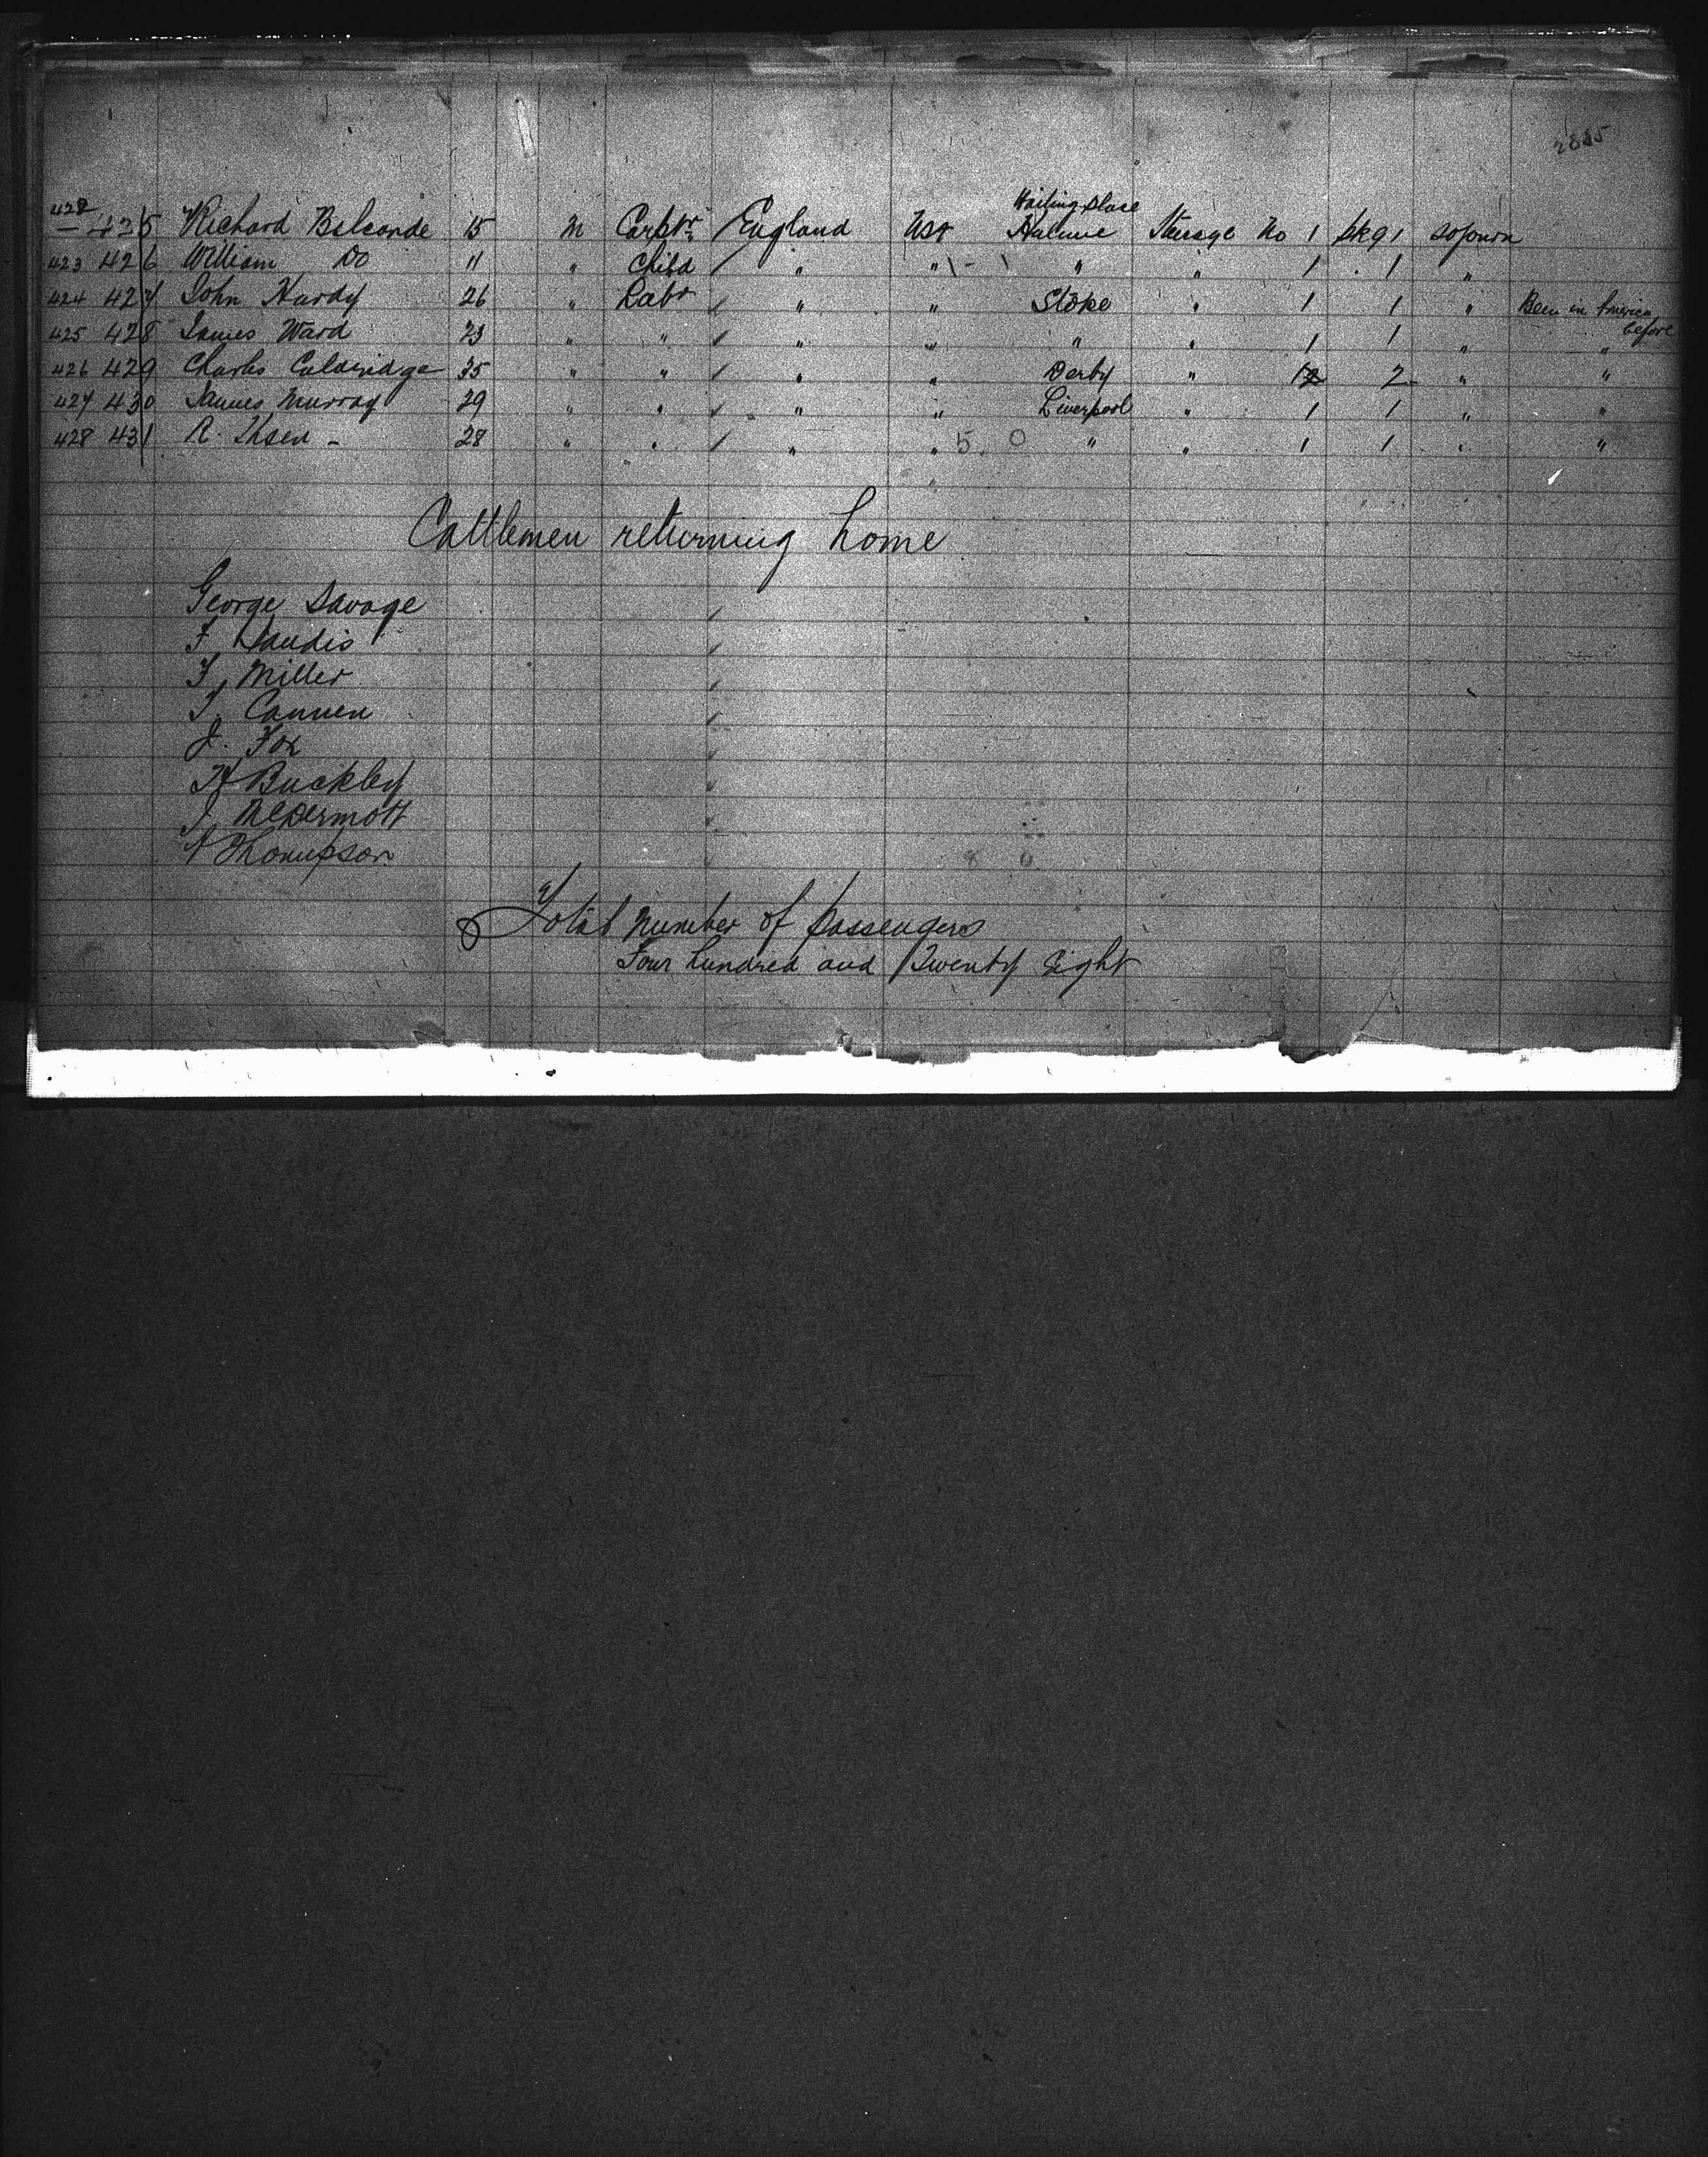 2885
Hailing place
422 425 Richard Balcombe 15 M Carptr England USA Hulme Steerage No 1 pkg 1 Sojourn
423 426 William Do 11 " Child " " " " 1 1 "
424 427 John Hardy 26 " Labr " " Stoke " 1 1 " Been in America before
425 428 James Ward 23 " " " " " " 1 1 " "
426 429 Charles 35 " " " " Derby " 2 2 " "
427 430 James Murray 29 " " " " Liverpool " 1 1 " "
428 431 R. 28 " " " " 5. 0 " " 1 1 " "
Cattlemen returning home
George Savage
F. Landis
F. Miller
T. Cannen
J. Fox
H Buckley
J McDermott
Thompson
Total Number of passengers
Four hundred and Twenty Eight